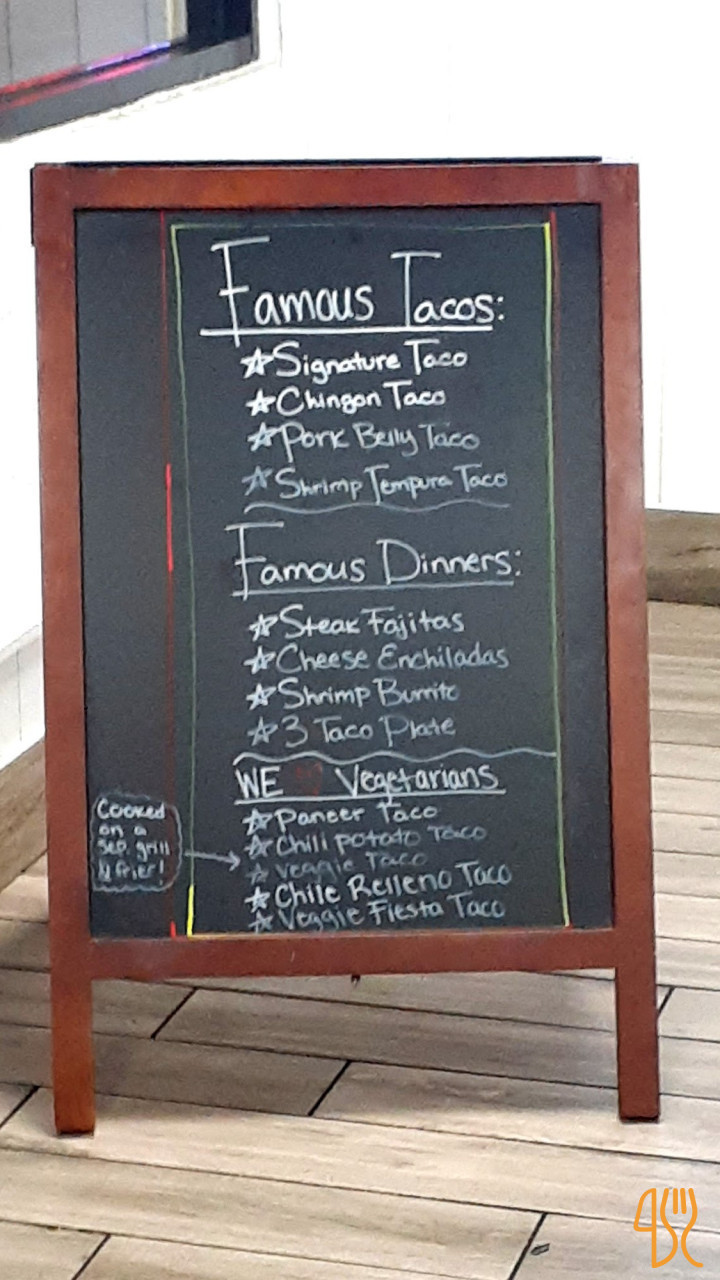 Famous Tacos:
☆Signature Taco
☆Chingon Taco
☆Pork Belly Taco
☆Shrimp Tempura Taco
Famous Dinners:
☆Steak Fajitas
☆Cheese Enchiladas
☆Shrimp Burrito
☆3 Taco Plate
WE ♡ Vegetarians
☆Paneer Taco
☆Chili potato Taco
☆Veggie Taco
☆Chile Relleno Taco
☆Veggie Fiesta Taco
Cooked
on a
Sep. grill
& frier!